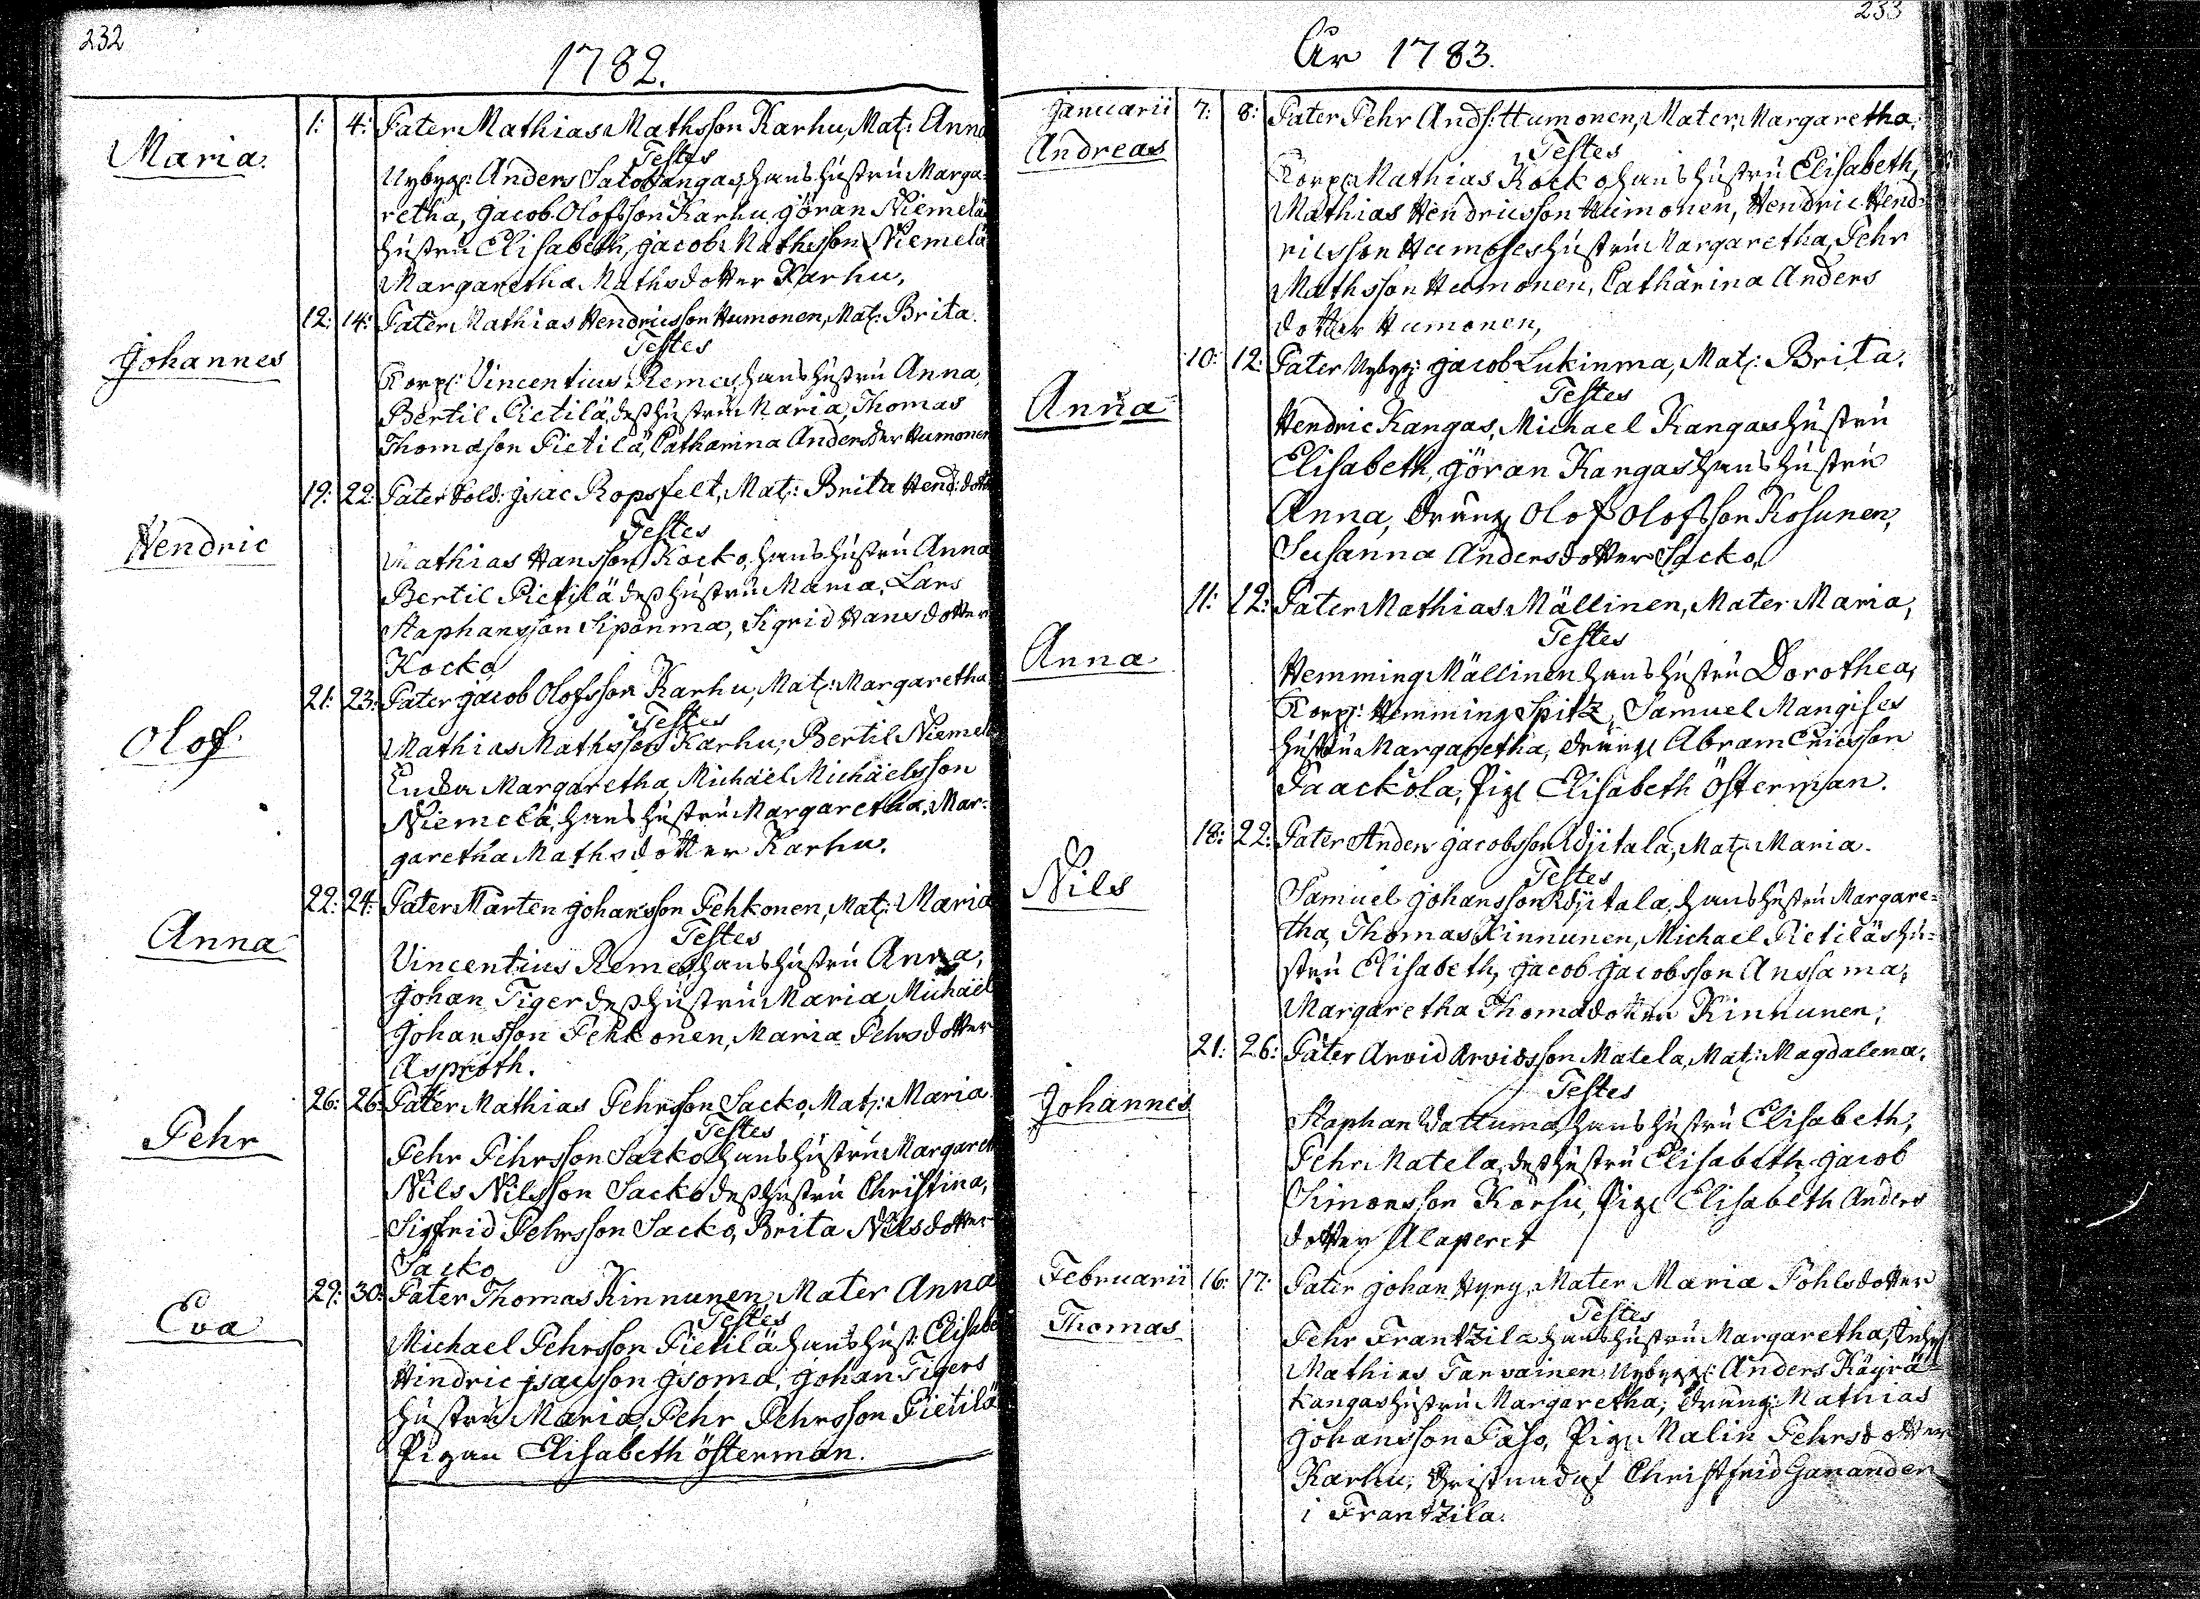 232
1782.
Maria.
1: 4: Pater Mathias Mathsson Karhu, Mat: Anna
Testes
Nybygg: Anders Salokangas, hans hustru Marga-
retha, Jacob Olofsson Karhu, Göran Niemelä
hustru Elisabeth, Jacob Mathsson Niemelä
Margaretha Mathsdotter Karhu,
Johannes
12: 14: Pater Mathias Hendricsson Humonen, Mat: Brita.
Testes
Korp: Vincentius Remes, hans hustru Anna,
Bertil Pietilä, dess hustru Maria, Thomas
Thomasson Pietilä, Catharina Andersder Humonen
Hendric
19: 22: Pater Sold: Isac Ropsfelt, Mat: Brita Hend: dotter
Testes
Mathias Hansson Kocko, hans hustru Anna
Bertil Pietilä dess hustru Maria, Lars
Staphansson Siponma, Sigrid Hansdotter
Kocko
Olof.
21: 23: Pater Jacob Olofsson Karhu, Mat: Margaretha
Testes
Mathias Mathsson Karhu, Bertil Niemelä
Margaretha, Michäel Michäelsson
Niemelä, hans hustru Margaretha, Mar-
garetha Mathsdotter Karhu.
Anna
22: 24: Pater Mårten Johansson Pehkonen, Mat: Maria
Testes
Vincentius Remes, hans hustru Anna,
Johan Tiger dess hustru Maria, Michäel
Johansson Pehkonen, Maria Pehrsdotter
Asproth.
Pehr
26: 26: Pater Mathias Pehrsson Sacko, Mat: Maria
Testes
Pehr Pehrsson Sacko, hans hustru Margareth
Nils Nilsson Sacko dess hustru Christina,
Sigfrid Pehrsson Sacko, Brita Nilsdotter
Sacko
Eva
29: 30: Pater Thomas Kinnunen, Mater Anna
Testes
Michael Pehrsson Pietilä hans hust: Elisabe
Hindric Isacsson Isoma, Johan Tigers
hustru Maria, Pehr Pehrsson Pietilä
Pigan Elisabeth Österman.
233
År 1783.
Januarii
Andreas
7: 8: Pater Pehr Ands: Humonen, Mater Margaretha.
Testes
Korp: Mathias Kocko, hans hustru Elisabeth,
Mathias Hendricsson Humonen, Hendric Hend-
ricsson hustru Margaretha, Pehr
Mathsson Humonen, Catharina Anders
dotter Humonen,
Anna
10: 12: Pater Nybyg: Jacob Lukinma, Mat: Brita.
Testes
Hendric Kangas, Michael Kangas hustru
Elisabeth, Göran Kangas, hans hustru
Anna, dräng Olof Olofsson Kosunen,
Susanna Andersdotter Sacko,
Anna
11: 12: Pater Mathias Mällinen, Mater Maria,
Testes
Hemming Mällinen hans hustru Dorothea,
Korp: Hemming Spitz, Samuel Mangises
hustru Margaretha, dräng Abram Ericsson
Paackola, Pig: Elisabeth Österman.
Nils
18: 22: Pater Anders Jacobsson Rajitala, Mat: Maria.
Testes
Samuel Johansson Rajitala, hans hustru Margare-
tha, Thomas Kinnunen, Michael Pietiläs hu-
stru Elisabeth, Jacob Jacobsson Anssama,
Margaretha Thomadotter Kinnunen,
Johannes
21: 26: Pater Arvid Arvidsson Matela, Mat: Magdalena.
Testes
Staphan Wattuma, hans hustru Elisabeth,
Pehr Matela, dess hustru Elisabeth, Jacob
Simonsson Korhu, Pig: Elisabeth Anders
dotter Alaperet
Februarii
Thomas
16: 17: Pater Johan Hyry, Mater Maria Pohlsdotter
Testes
Pehr Frantzila hans hustru Margaretha,
Mathias Tarvainen, Nybygg: Anders Käyrä-
kangas hustru Margaretha, dräng: Mathias
Johansson Paso, Pig: Malin Pehrsdotter
Karhu, Christnad af Christfrid Gananden
i Frantzila.